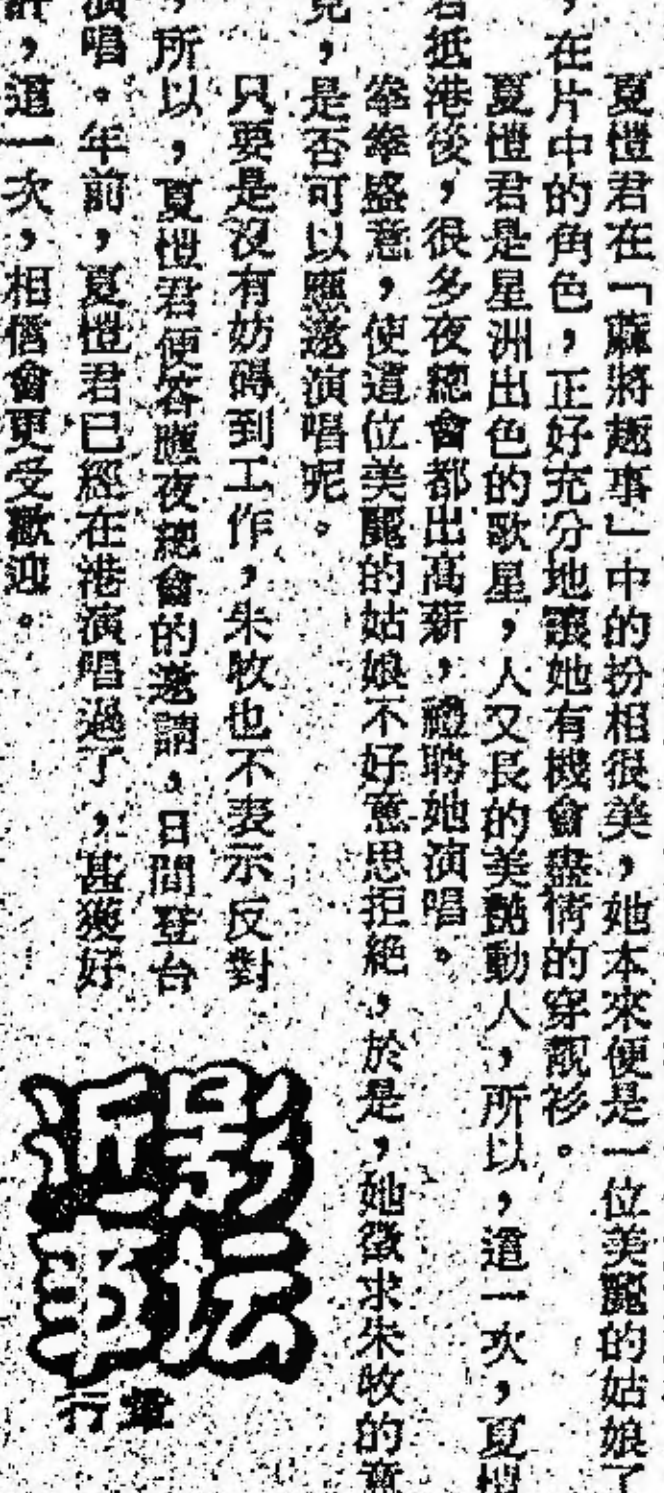 夏愷君在「蔴將趣事」中的扮相很美，她本來便是一位美麗的姑娘了
，在片中的角色，正好充分地讓她有機會盡情的穿靚衫。
夏愷君是星洲出色的歌星，人又長的美艷動人，所以，這一次，夏愷
君抵港後，很多夜總會都出高薪，禮聘她演唱。
拳拳盛意，使這位美麗的姑娘不好意思拒絕，於是，她徵求朱牧的意
見，是否可以應邀演唱呢。
只要是沒有妨碍到工作，朱牧也不表示反對
，所以，夏愷君便答應夜總會的邀請，日間登台
演唱。年前，夏愷君已經在港演唱過了，甚獲好
評，這一次，相信會更受歡迎。
影坛
近事
行